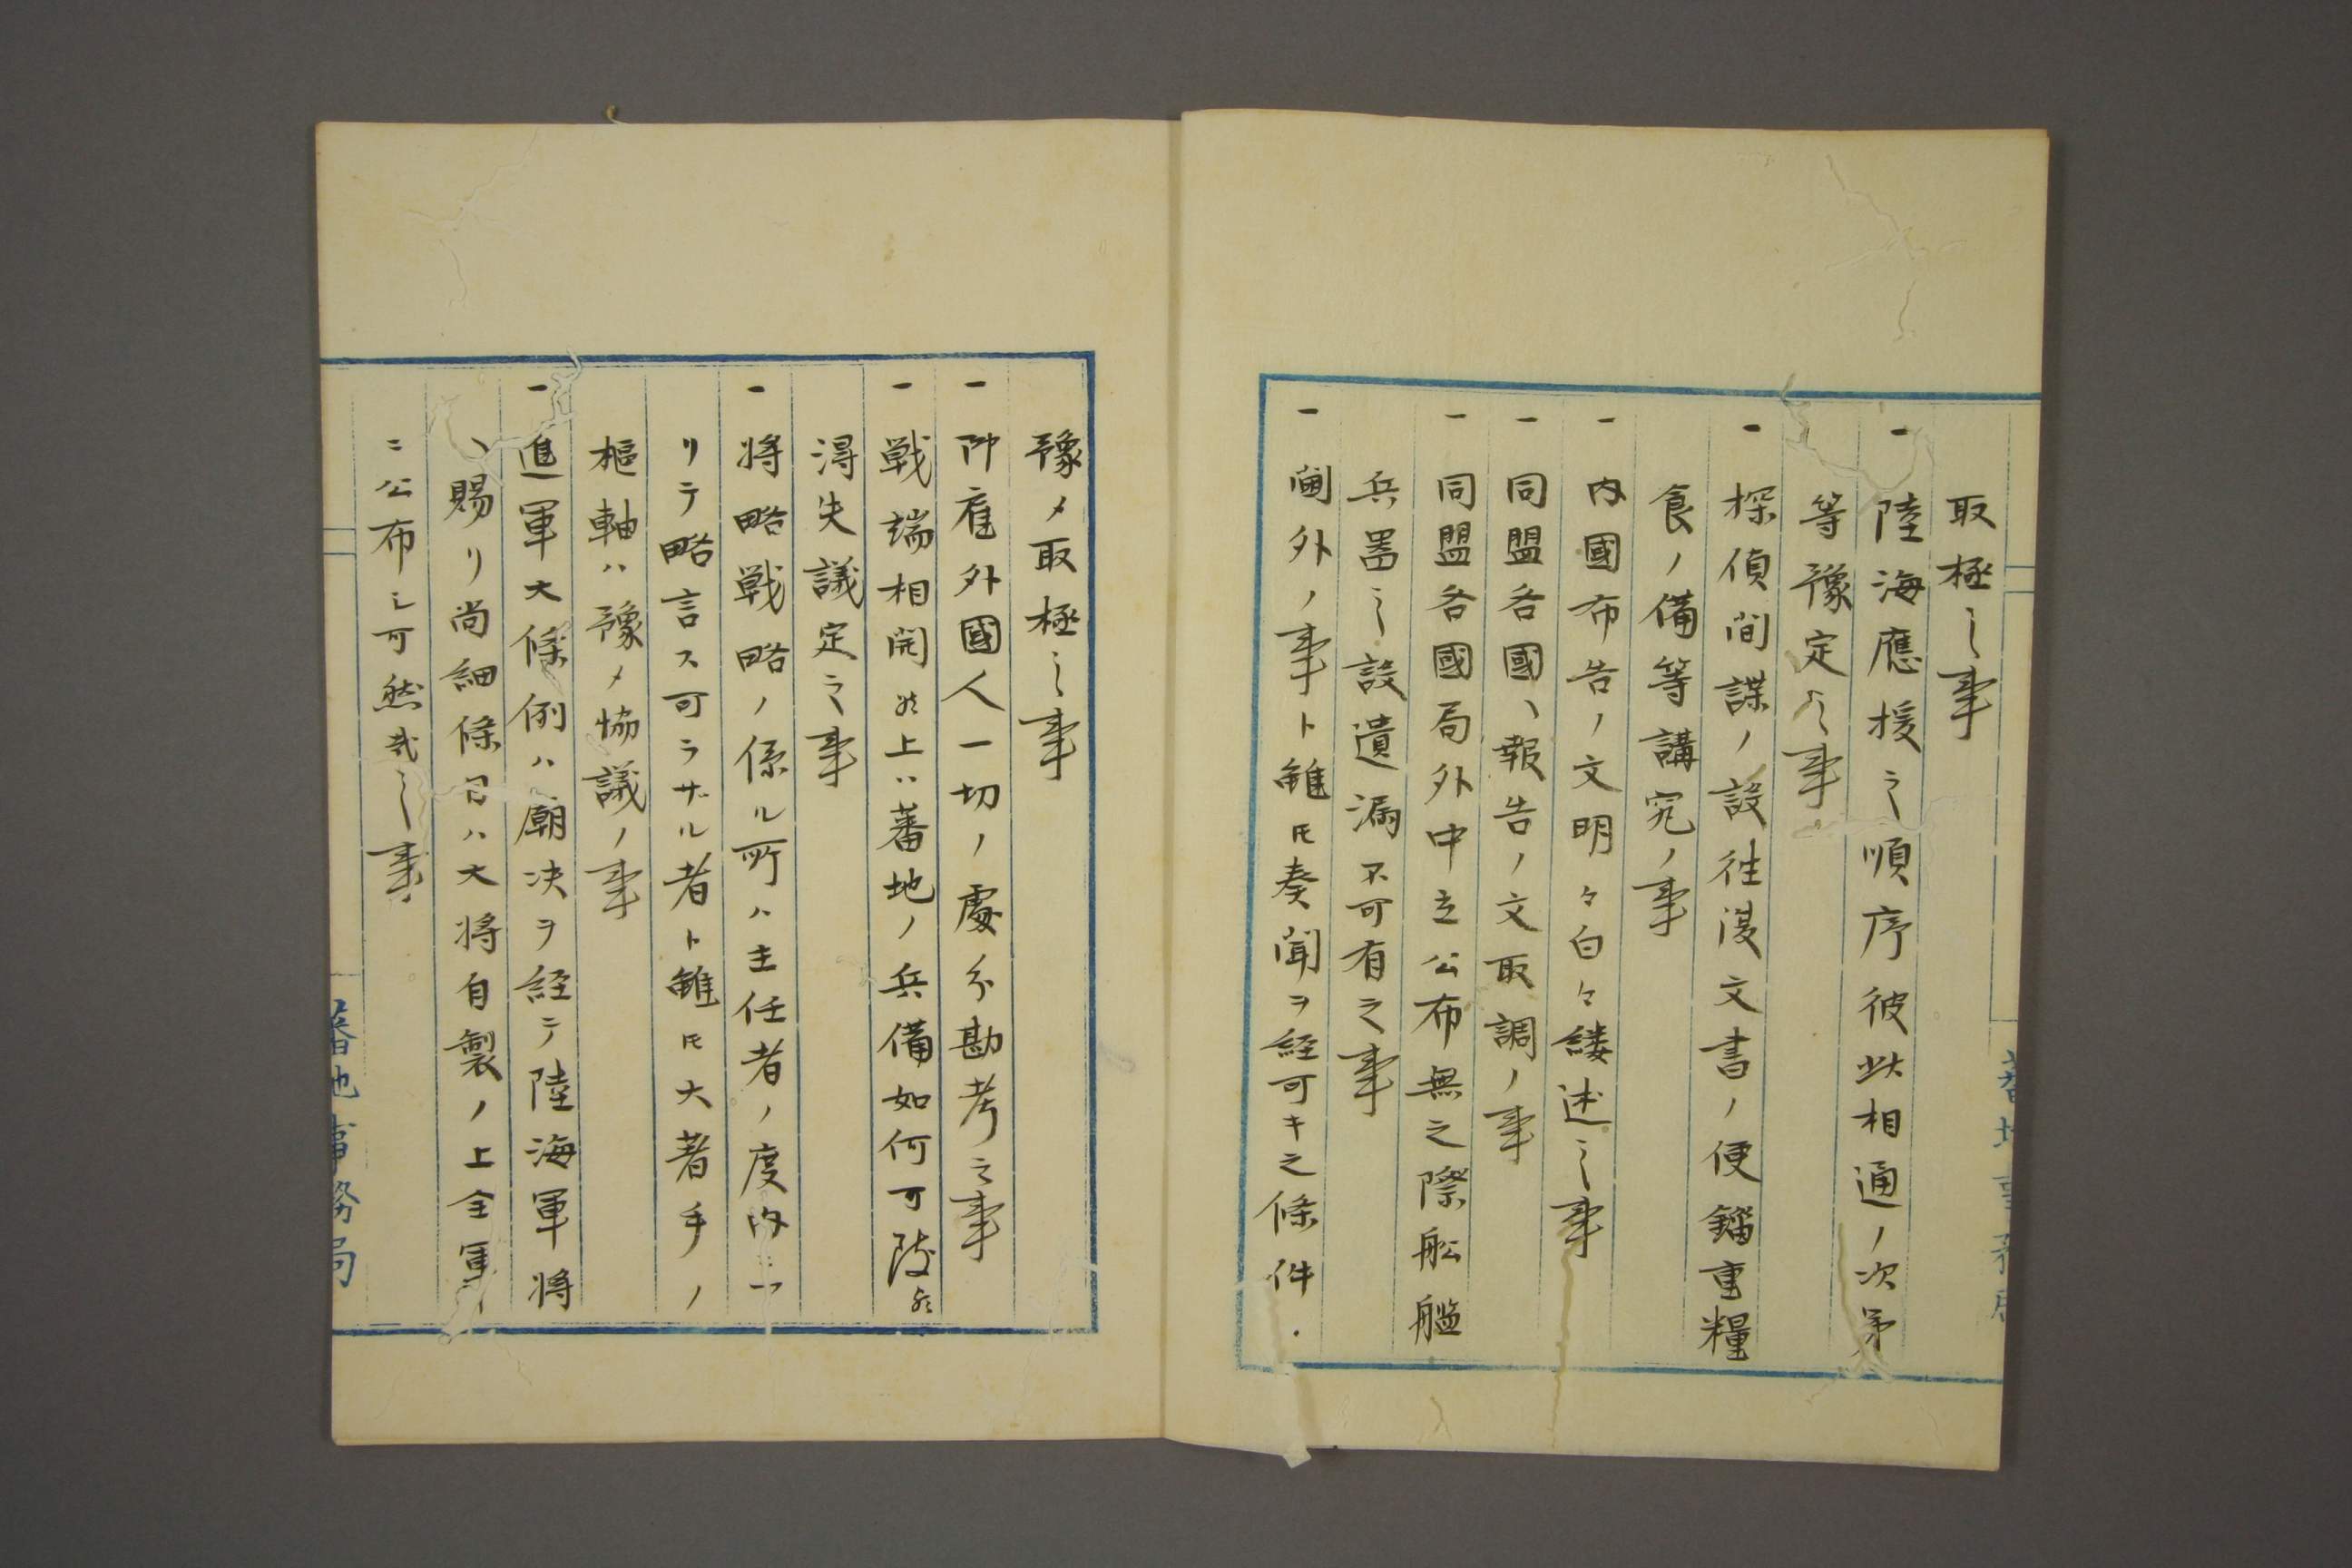 取極之事
一 陸海應援之順序彼此相通ノ次第
等豫定之事
一 探偵間諜ノ設往復文書ノ便錙重糧
食ノ備等講究ノ事
一 内國布告ノ文明々白々縷述之事
一 同盟各國ヘ報告ノ文取調ノ事
一 同盟各國局外中立公布無之際舩艦
兵噐之設遺漏不可有之事
一 閫外ノ事ト雖𪜈奏聞ヲ経可キ之條件
蕃地事務局
豫メ取極之事
一 御雇外國人一切ノ處分勘考之事
一 戦端相開候上ハ蕃地ノ兵備如何可致候
淂失議定之事
一 将略戦略ノ係ル所ハ主任者ノ度内ニ
リテ略言ス可ラザル者ト雖𪜈大著手ノ
樞軸ハ豫メ協議ノ事
一 進軍大條例ハ廟决ヲ経テ陸海軍将
ヘ賜リ尚細條目ハ大将自製ノ上全軍
ニ公布シ可然哉之事
蕃地事務局